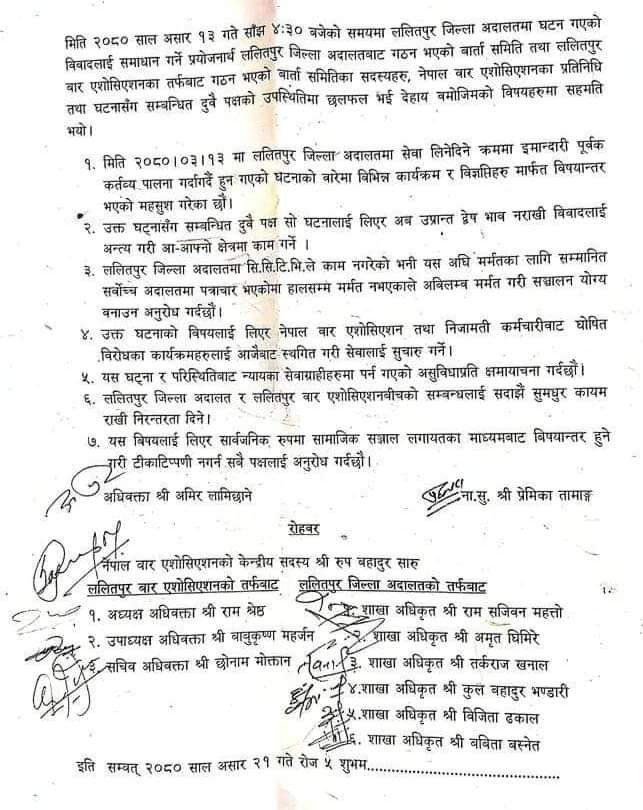 मिति २०८० साल असार १३ गते साँझ ४:३० बजेको समयमा ललितपुर जिल्ला अदालतमा घटन गएको
विवादलाई समाधान गर्ने प्रयोजनार्थ ललितपुर जिल्ला अदालतबाट गठन भएको बार्ता समिति तथा ललितपुर
वार एशोसिएशनका तर्फबाट गठन भएको बार्ता समितिका सदस्यहरु, नेपाल वार एशोसिएशनका प्रतिनिधि
तथा घटनासँग सम्बन्धित दुवै पक्षको उपस्थितिमा छलफल भई देहाय वमोजिमको विषयहरुमा सहमति
भयो।
१. मिति २०८०।०३।१३ मा ललितपुर जिल्ला अदालतमा सेवा लिनेदिने क्रममा इमान्दारी पूर्वक
कर्तव्य पालना गर्दागर्दै हुन गएको घटनाको वारेमा विभिन्न कार्यक्रम र विज्ञप्तिहरु मार्फत विषयान्तर
भएको महसुश गरेका छौं।
२. उक्त घट्नासँग सम्बन्धित दुवै पक्ष सो घटनालाई लिएर अब उप्रान्त द्वेष भाव नराखी विवादलाई
अन्त्य गरी आ-आफ्नो क्षेत्रमा काम गर्ने ।
३. ललितपुर जिल्ला अदालतमा सि.सि.टि.भि.ले काम नगरेको भनी यस अघि मर्मतका लागि सम्मानित
सर्वोच्च अदालतमा पत्राचार भएकोमा हालसम्म मर्मत नभएकाले अविलम्ब मर्मत गरी सञ्चालन योग्य
वनाउन अनुरोध गर्दछौं।
४. उक्त घटनाको विषयलाई लिएर नेपाल वार एशोसिएशन तथा निजामती कर्मचारीवाट घोषित
विरोधका कार्यक्रमहरुलाई आजैबाट स्थगित गरी सेवालाई सुचारु गर्ने।
५. यस घट्ना र परिस्थितिबाट न्यायका सेवाग्राहीहरुमा पर्न गएको असुविधाप्रति क्षमायाचना गर्दछौं।
६. ललितपुर जिल्ला अदालत र ललितपुर वार एशोसिएशनबीचको सम्बन्धलाई सदाझैं सुमधुर कायम
राखी निरन्तरता दिने।
७. यस बिषयलाई लिएर सार्वजनिक रुपमा सामाजिक सञ्जाल लगायतका माध्यमबाट बिषयान्तर हुने
गरी टीकाटिप्पणी नगर्न सबै पक्षलाई अनुरोध गर्दछौं।
अधिवक्ता श्री अमिर लामिछाने ना.सु. श्री प्रेमिका तामाङ्ग
रोहवर
नेपाल वार एशोसिएशनको केन्द्रीय सदस्य श्री रुप बहादुर सारु
ललितपुर बार एशोसिएशनको तर्फबाट ललितपुर जिल्ला अदालतको तर्फबाट
१. अध्यक्ष अधिवक्ता श्री राम श्रेष्ठ १. शाखा अधिकृत श्री राम सजिवन महत्तो
२. उपाध्यक्ष अधिवक्ता श्री बाबुकृष्ण महर्जन २. शाखा अधिकृत श्री अमृत घिमिरे
३. सचिव अधिवक्ता श्री छोनाम मोक्तान ३. शाखा अधिकृत श्री तर्कराज खनाल
४.शाखा अधिकृत श्री कुल बहादुर भण्डारी
५.शाखा अधिकृत श्री विजिता ढकाल
६. शाखा अधिकृत श्री बबिता बस्नेत
इति सम्वत् २०८० साल असार २१ गते रोज ५ शुभम्..............................